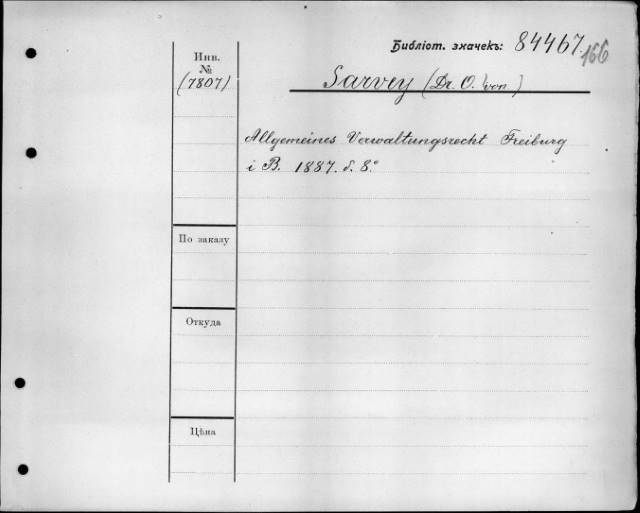 Библіот. значекъ: 84467.
166
Инв.
№
(7807)
Sarvey (Dr. O. von)
Allgemeines Verwaltungsrecht Freiburg
i B. 1887. d. 8.°
По заказу
Откуда
Цѣна